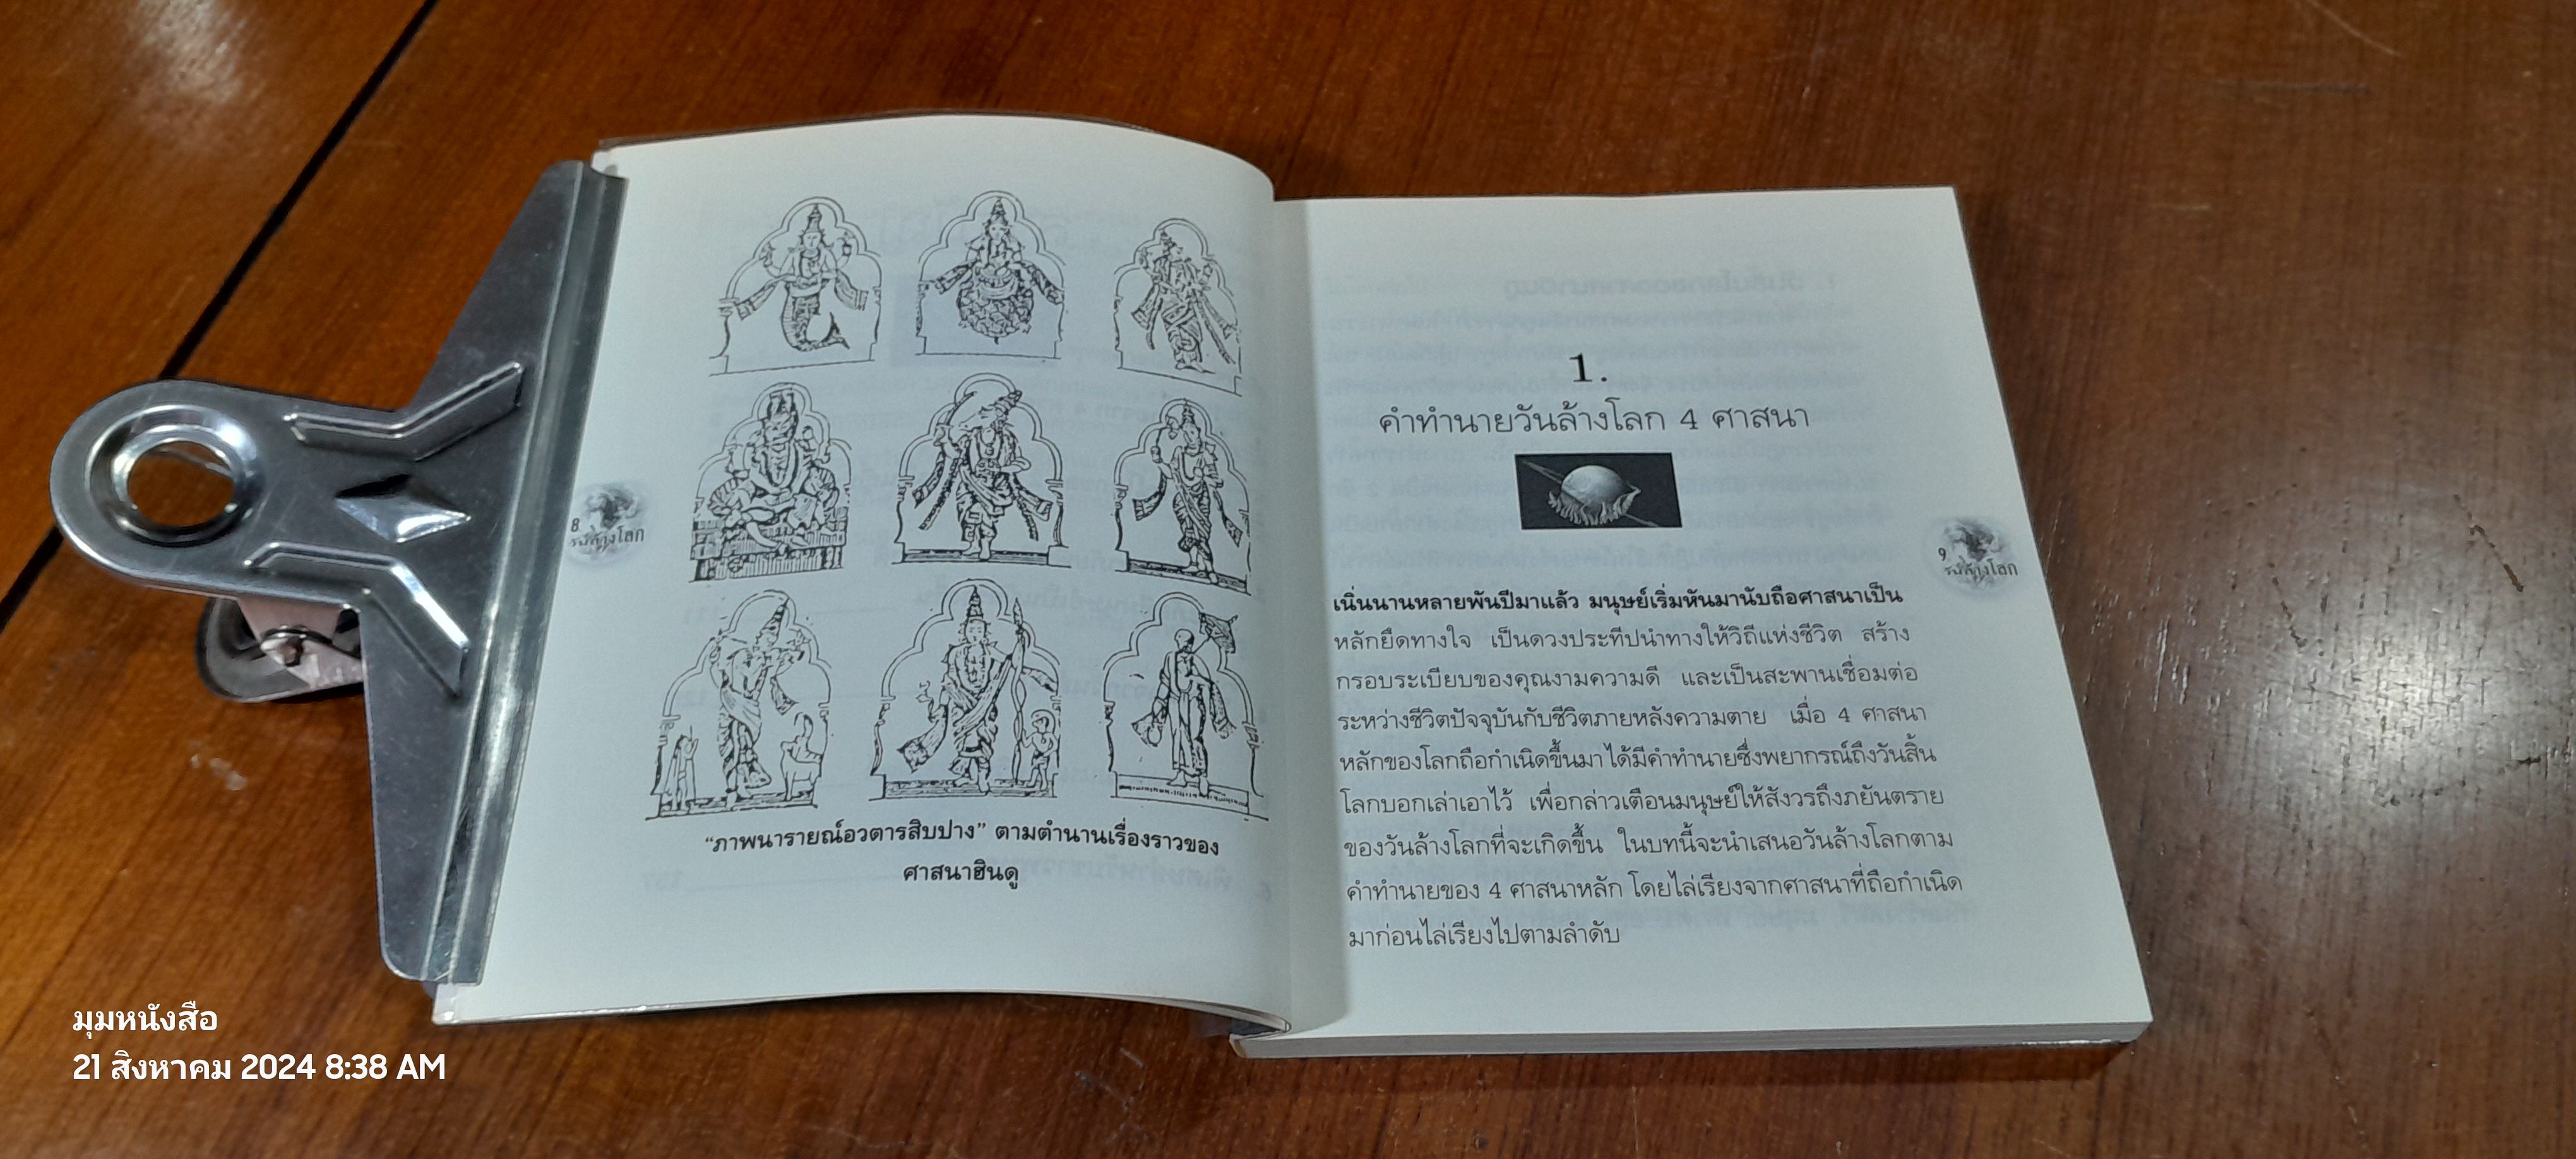 8
วันล้างโลก
"ภาพนารายณ์อวตารสิบปาง" ตามตำนานเรื่องราวของ
ศาสนาฮินดู
1.
คำทำนายวันล้างโลก 4 ศาสนา
เนิ่นนานหลายพันปีมาแล้ว มนุษย์เริ่มหันมานับถือศาสนาเป็น
หลักยึดทางใจ เป็นดวงประทีปนำทางให้วิถีแห่งชีวิต สร้าง
กรอบระเบียบของคุณงามความดี และเป็นสะพานเชื่อมต่อ
ระหว่างชีวิตปัจจุบันกับชีวิตภายหลังความตาย เมื่อ 4 ศาสนา
หลักของโลกถือกำเนิดขึ้นมา ได้มีคำทำนายซึ่งพยากรณ์ถึงวันสิ้น
โลกบอกเล่าเอาไว้ เพื่อกล่าวเตือนมนุษย์ให้สังวรถึงภยันตราย
ของวันล้างโลกที่จะเกิดขึ้น ในบทนี้จะนำเสนอวันล้างโลกตาม
คำทำนายของ 4 ศาสนาหลัก โดยไล่เรียงจากศาสนาที่ถือกำเนิด
มาก่อนไล่เรียงไปตามลำดับ
9
วันล้างโลก
มุมหนังสือ
21 สิงหาคม 2024 8:38 AM